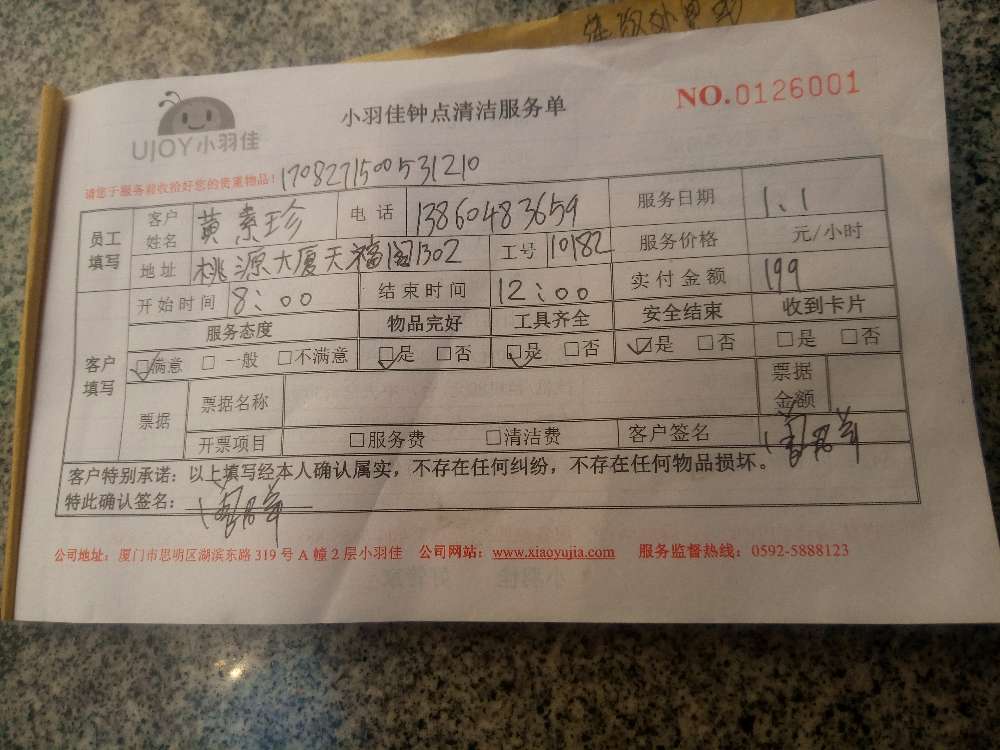 NO.0126001
小羽佳钟点清洁服务单
UJOY小羽佳
请您于服务前收拾好您的贵重物品！170827150053​1210
员工填写 客户姓名 黄素珍 电话 13860483659 服务日期 1.1
地址 桃源大厦天福阁1302 工号 10182 服务价格 元/小时
客户填写 开始时间 8:00 结束时间 12:00 实付金额 199
服务态度 物品完好 工具齐全 安全结束 收到卡片
☑满意 □一般 □不满意 ☑是 □否 ☑是 □否 ☑是 □否 □是 □否
票据 票据名称 票据金额
开票项目 □服务费 □清洁费 客户签名
客户特别承诺：以上填写经本人确认属实，不存在任何纠纷，不存在任何物品损坏。
特此确认签名：
公司地址：厦门市思明区湖滨东路319号A幢2层小羽佳 公司网站：www.xiaoyujia.com 服务监督热线：0592-5888123